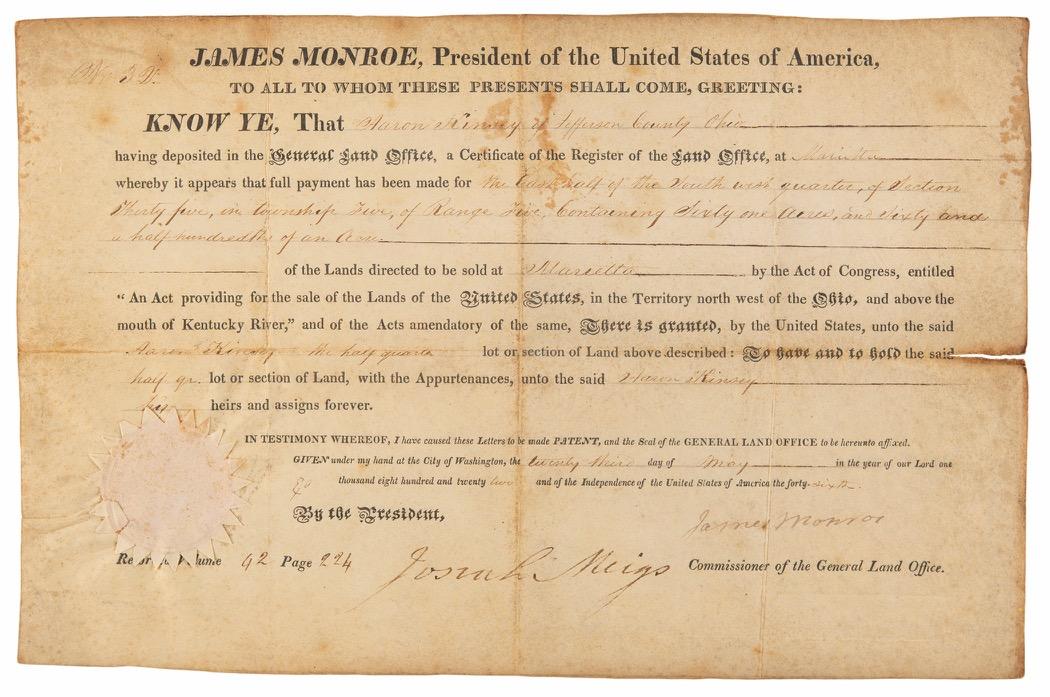 JAMES MONROE, President of the United States of America,
TO ALL TO WHOM THESE PRESENTS SHALL COME, GREETING:
KNOW YE, That Aaron Kinsey of Jefferson County Ohio
having deposited in the General Land Office, a Certificate of the Register of the Land Office, at Marietta
whereby it appears that full payment has been made for the East half of the South west quarter, of Section
Thirty five, in township Five, of Range Five, Containing Sixty one Acres, and Sixty and
a half hundredths of an Acre
of the Lands directed to be sold at Marietta by the Act of Congress, entitled
"An Act providing for the sale of the Lands of the United States, in the Territory north west of the Ohio, and above the
mouth of Kentucky River," and of the Acts amendatory of the same, There is granted, by the United States, unto the said
Aaron Kinsey the half quarter lot or section of Land above described: To have and to hold the said
half qr. lot or section of Land, with the Appurtenances, unto the said Aaron Kinsey
his heirs and assigns forever.
IN TESTIMONY WHEREOF, I have caused these Letters to be made PATENT, and the Seal of the GENERAL LAND OFFICE to be hereunto affixed.
GIVEN under my hand at the City of Washington, the twenty third day of May in the year of our Lord one
thousand eight hundred and twenty two and of the Independence of the United States of America the forty-sixth.
By the President,
James Monroe
Josiah Meigs Commissioner of the General Land Office.
Volume 92 Page 224